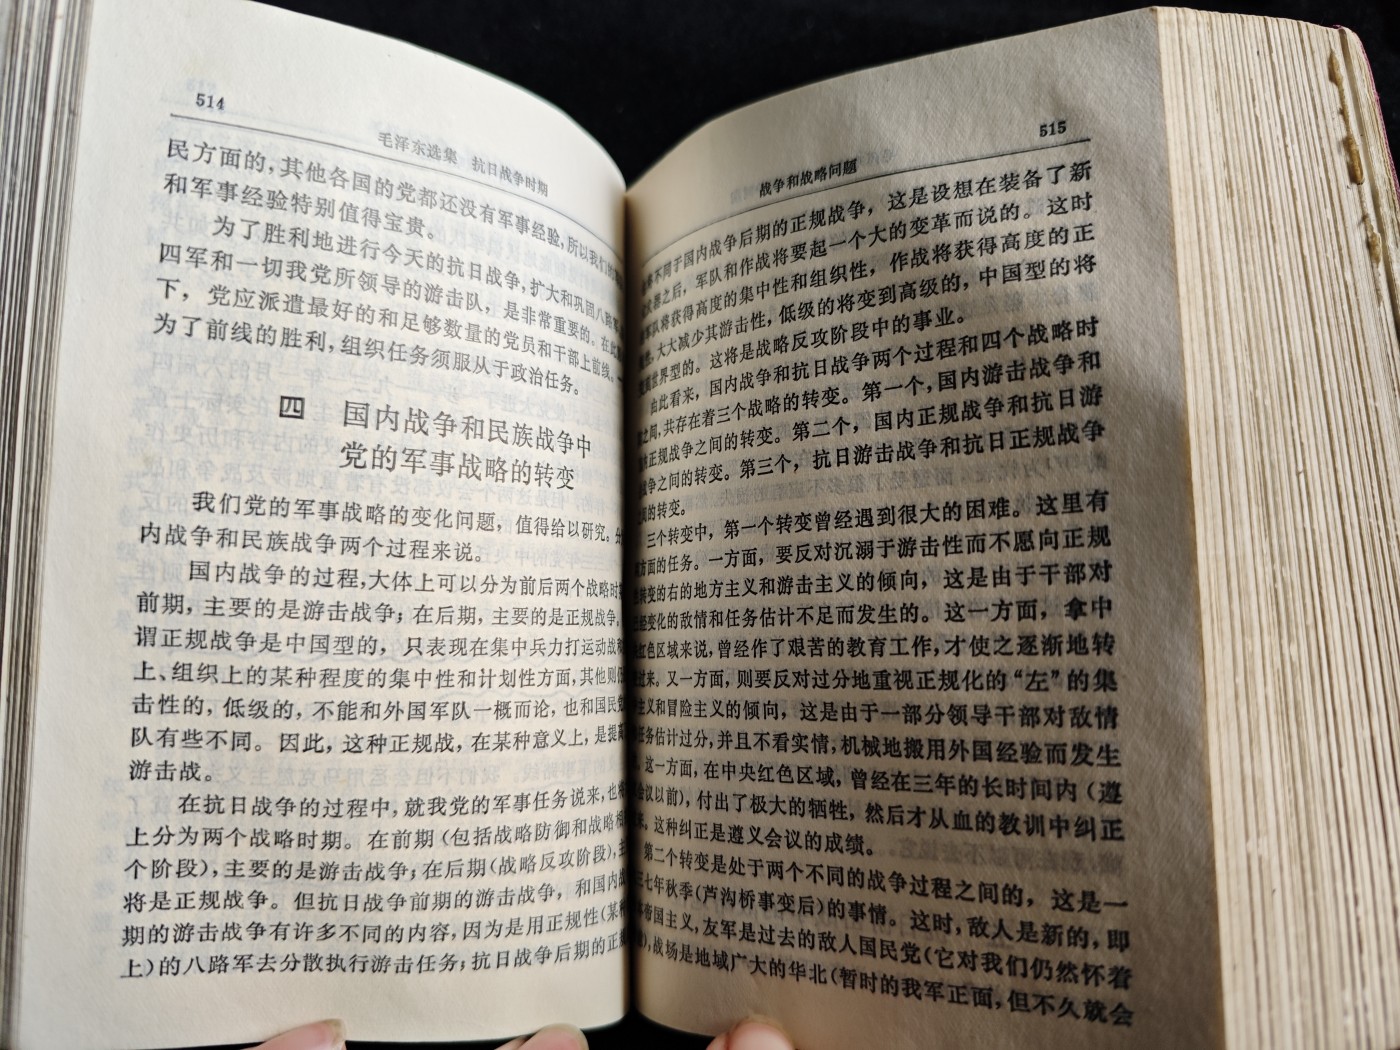 514
毛泽东选集　抗日战争时期
民方面的，其他各国的党都还没有军事经验，所以我们的
和军事经验特别值得宝贵。
为了胜利地进行今天的抗日战争，扩大和巩固八路军
四军和一切我党所领导的游击队，是非常重要的。在此
下，党应派遣最好的和足够数量的党员和干部上前线。一
为了前线的胜利，组织任务须服从于政治任务。
四　国内战争和民族战争中
党的军事战略的转变
我们党的军事战略的变化问题，值得给以研究。分
内战争和民族战争两个过程来说。
国内战争的过程，大体上可以分为前后两个战略时
前期，主要的是游击战争；在后期，主要的是正规战争，
谓正规战争是中国型的，只表现在集中兵力打运动战和
上、组织上的某种程度的集中性和计划性方面，其他则仍
击性的，低级的，不能和外国军队一概而论，也和国民党
队有些不同。因此，这种正规战，在某种意义上，是提高
游击战。
在抗日战争的过程中，就我党的军事任务说来，也将
上分为两个战略时期。在前期（包括战略防御和战略相
个阶段），主要的是游击战争；在后期（战略反攻阶段），主
将是正规战争。但抗日战争前期的游击战争，和国内战
期的游击战争有许多不同的内容，因为是用正规性（某种
上）的八路军去分散执行游击任务；抗日战争后期的正规
515
战争和战略问题
不同于国内战争后期的正规战争，这是设想在装备了新
之后，军队和作战将要起一个大的变革而说的。这时
军队将获得高度的集中性和组织性，作战将获得高度的正
，大大减少其游击性，低级的将变到高级的，中国型的将
世界型的。这将是战略反攻阶段中的事业。
由此看来，国内战争和抗日战争两个过程和四个战略时
之间，共存在着三个战略的转变。第一个，国内游击战争和
正规战争之间的转变。第二个，国内正规战争和抗日游
战争之间的转变。第三个，抗日游击战争和抗日正规战争
的转变。
三个转变中，第一个转变曾经遇到很大的困难。这里有
方面的任务。一方面，要反对沉溺于游击性而不愿向正规
转变的右的地方主义和游击主义的倾向，这是由于干部对
经变化的敌情和任务估计不足而发生的。这一方面，拿中
红色区域来说，曾经作了艰苦的教育工作，才使之逐渐地转
过来。又一方面，则要反对过分地重视正规化的“左”的集
主义和冒险主义的倾向，这是由于一部分领导干部对敌情
任务估计过分，并且不看实情，机械地搬用外国经验而发生
。这一方面，在中央红色区域，曾经在三年的长时间内（遵
会议以前），付出了极大的牺牲，然后才从血的教训中纠正
来。这种纠正是遵义会议的成绩。
第二个转变是处于两个不同的战争过程之间的，这是一
三七年秋季（芦沟桥事变后）的事情。这时，敌人是新的，即
帝国主义，友军是过去的敌人国民党（它对我们仍然怀着
），战场是地域广大的华北（暂时的我军正面，但不久就会